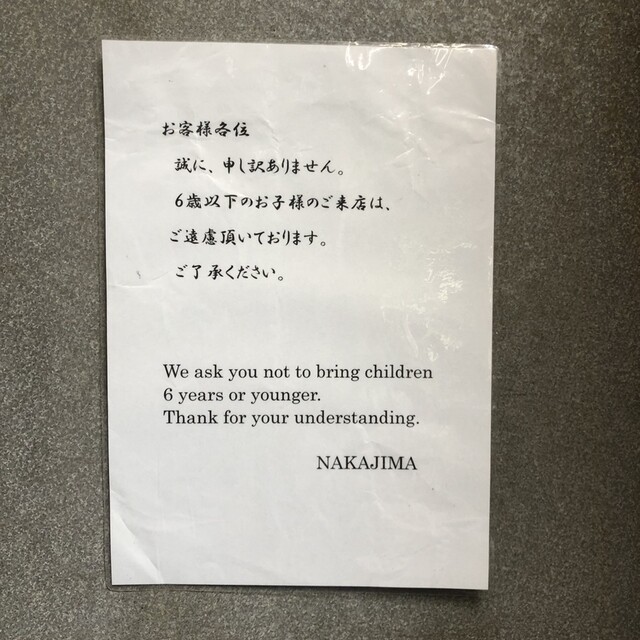 お客様各位
誠に、申し訳ありません。
6歳以下のお子様のご来店は、
ご遠慮頂いております。
ご了承ください。
We ask you not to bring children
6 years or younger.
Thank for your understanding.
NAKAJIMA